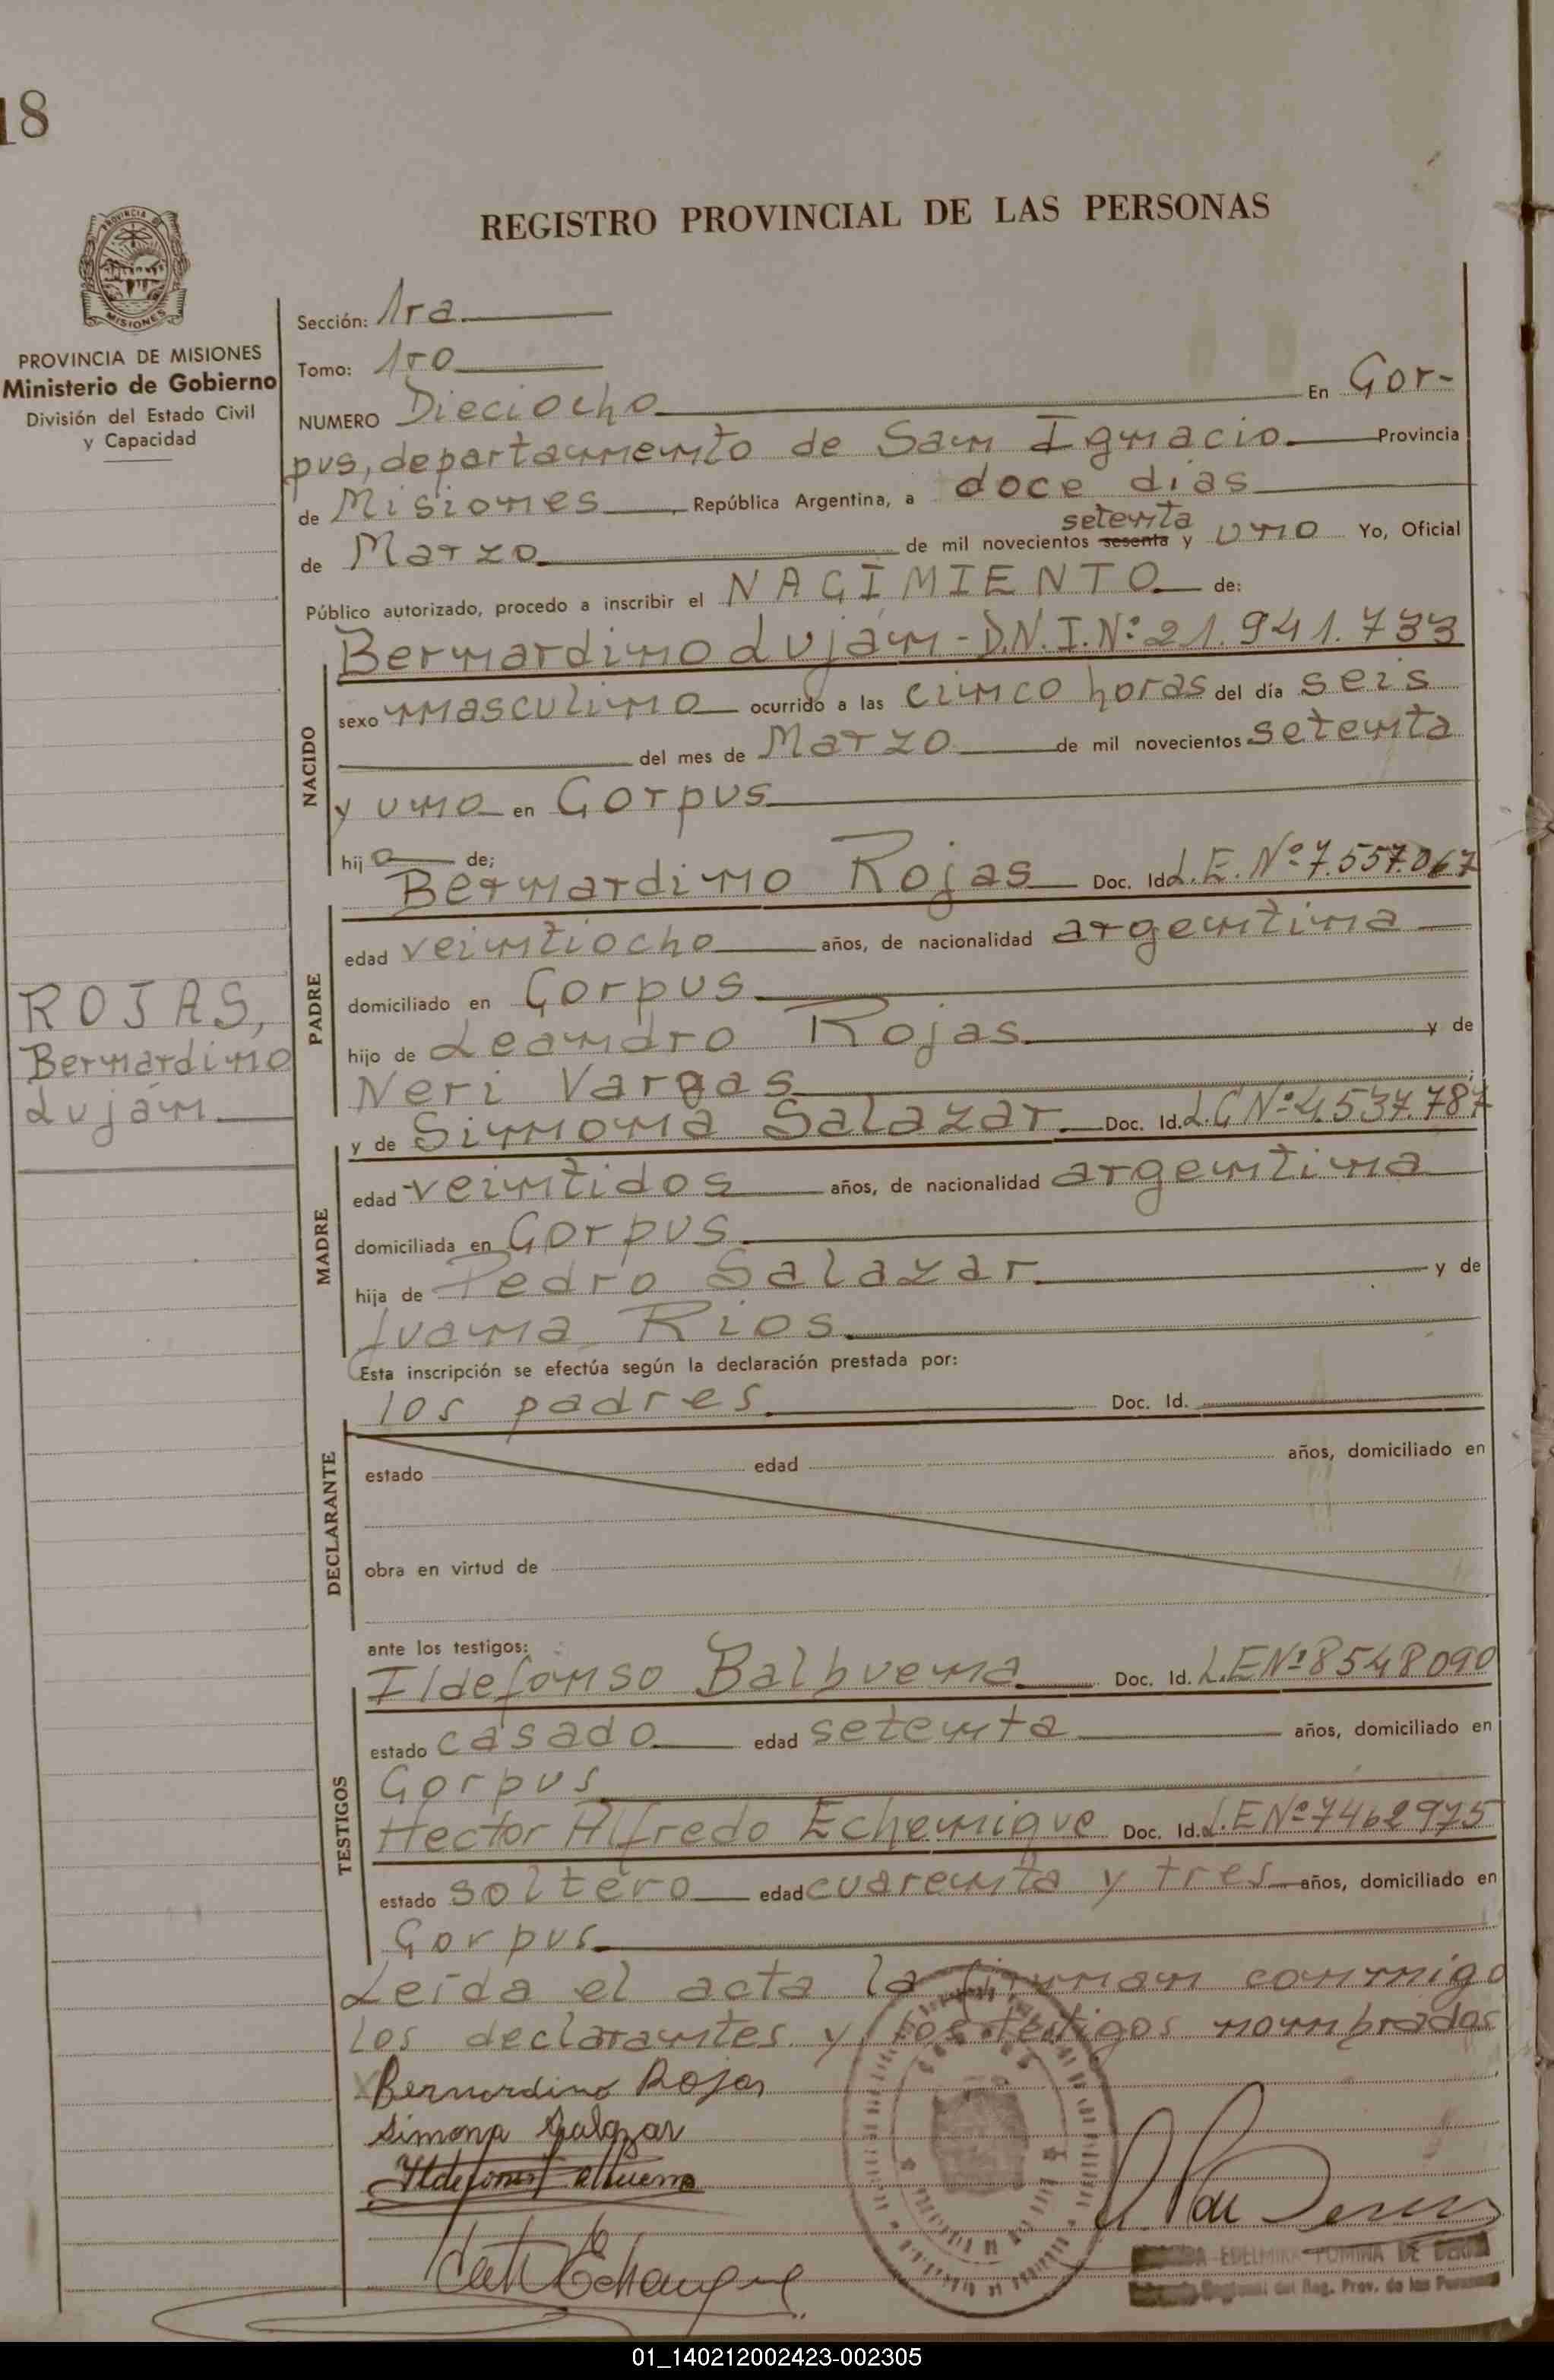 18
REGISTRO PROVINCIAL DE LAS PERSONAS
PROVINCIA DE
MISIONES
PROVINCIA DE MISIONES
Ministerio de Gobierno
División del Estado Civil
y Capacidad
Sección: 1ra
Tomo: 1ro
NUMERO Dieciocho En Cor-
pus, departamento de San Ignacio Provincia
de Misiones, República Argentina, a doce días
setenta
de Marzo de mil novecientos sesenta y uno Yo, Oficial
Público autorizado, procedo a inscribir el NACIMIENTO de:
Bernardino Luján - D.N.I.Nº 21.941.733
NACIDO
sexo masculino ocurrido a las cinco horas del día seis
del mes de Marzo de mil novecientos setenta
y uno en Corpus
hijo de;
Bernardino Rojas Doc. Id. L.E. Nº 7.557.067
PADRE
edad veintiocho años, de nacionalidad argentina
domiciliado en Corpus
hijo de Leandro Rojas y de
Neri Vargas;
ROJAS,
Bernardino
Luján
y de Simona Salazar Doc. Id. L.C Nº 4.537.787
MADRE
edad veintidos años, de nacionalidad argentina
domiciliada en Corpus
hija de Pedro Salazar y de
Juana Rios
Esta inscripción se efectúa según la declaración prestada por:
los padres Doc. Id.
DECLARANTE
estado edad años, domiciliado en
obra en virtud de
ante los testigos:
Ildefonso Balbuena Doc. Id. L.E Nº 8548090
TESTIGOS
estado casado edad setenta años, domiciliado en
Corpus
Hector Alfredo Echenique Doc. Id. L.E Nº 7462975
estado soltero edad cuarenta y tres años, domiciliado en
Corpus
Leída el acta la firman conmigo
los declarantes y los testigos nombrados
Bernardino Rojas
Simona Salazar
EDELMIRA DE
del Reg. Prov. de las Personas
01_140212002423-002305